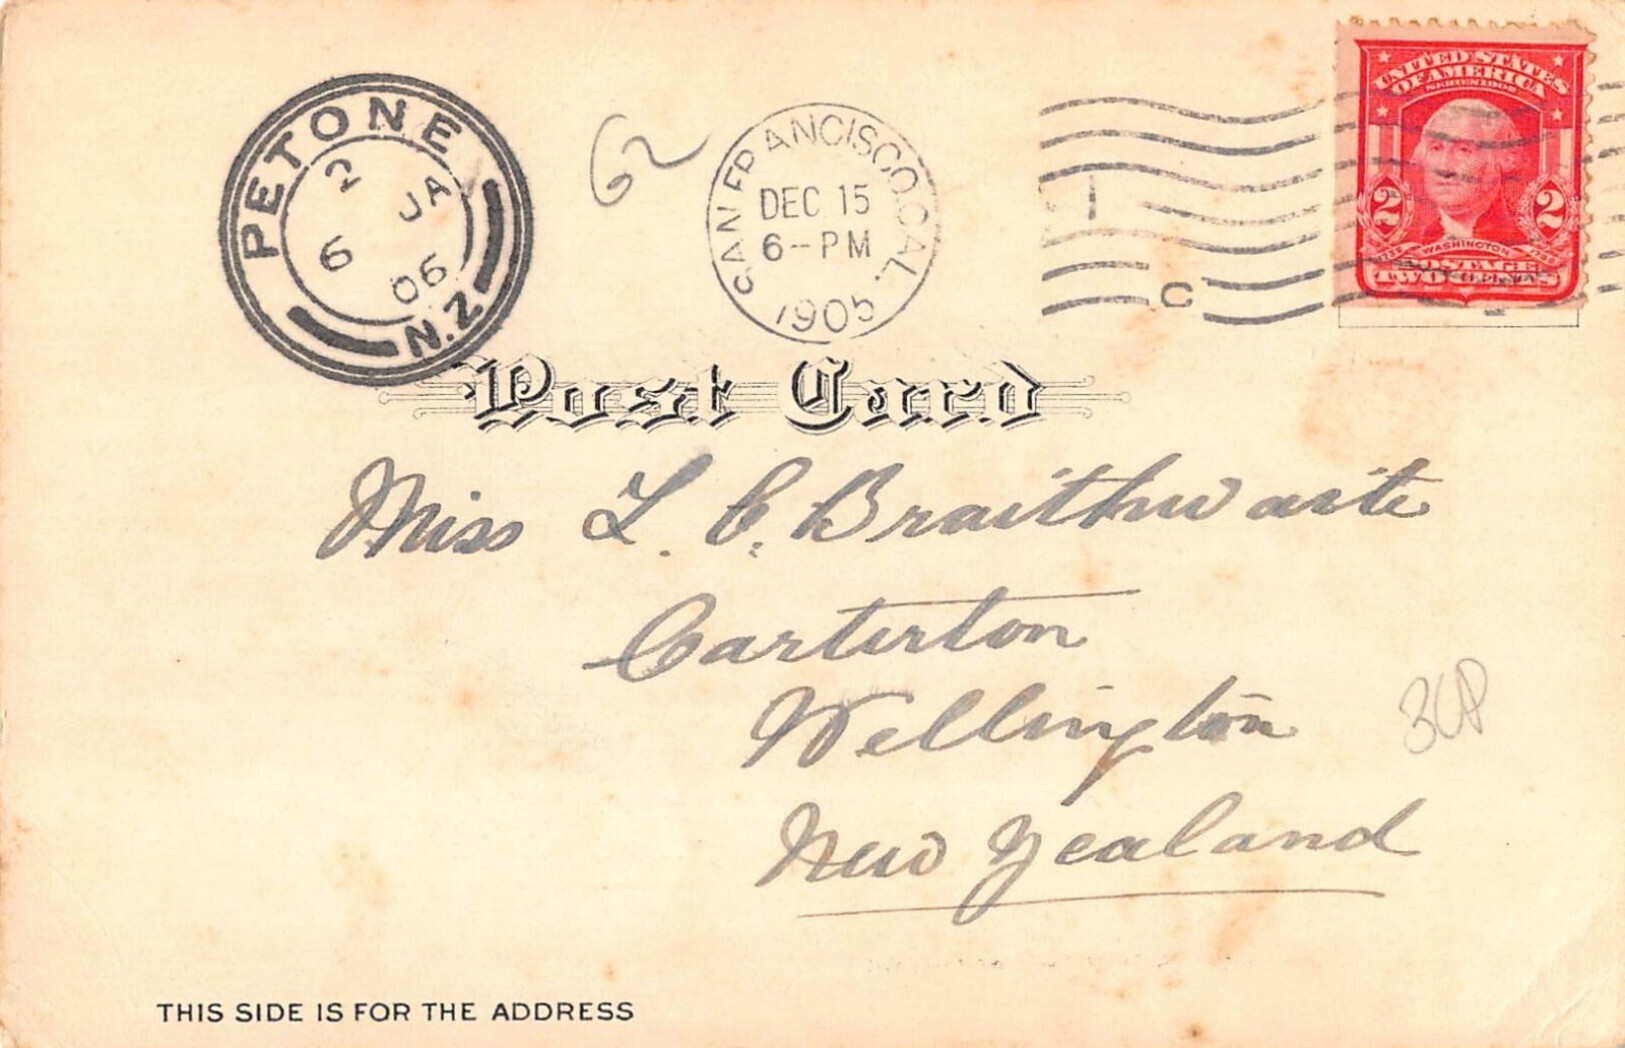 PETONE
2 JA
6
06
N.Z
62
SAN FRANCISCO, CAL.
DEC 15
6-PM
1905
C
UNITED STATES
OF AMERICA
SERIES 1902
2 2
1732 WASHINGTON 1799
POSTAGE
TWO CENTS
Post Card
Miss L. C. Braithwaite
Carterton
Wellington
New Zealand
THIS SIDE IS FOR THE ADDRESS